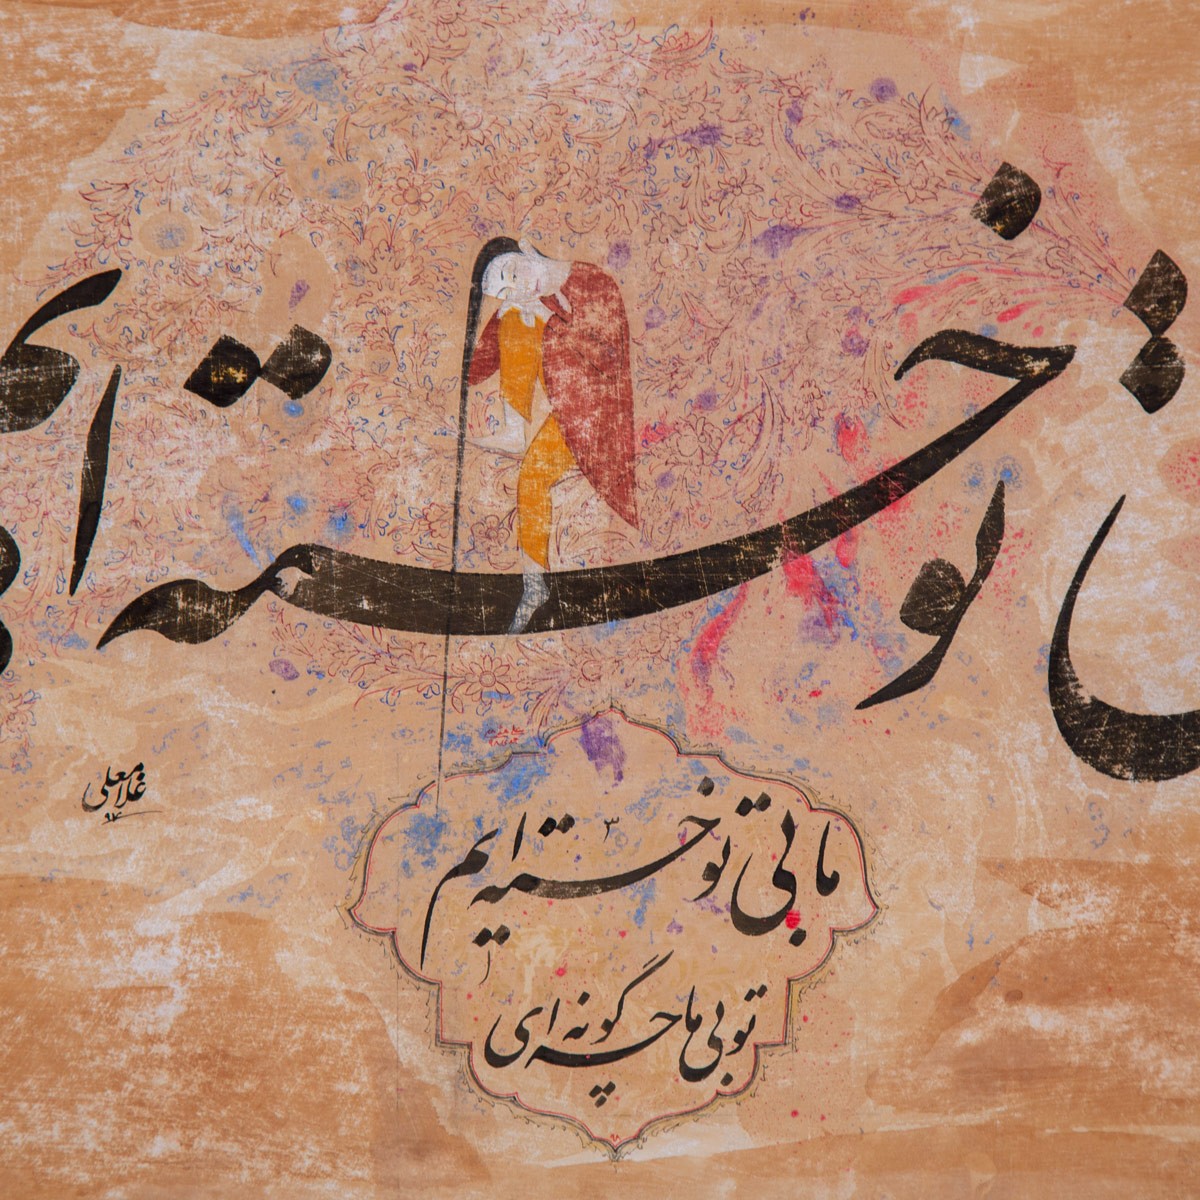 تو خسته ایم
ما بی تو خسته ایم
تو بی ما چگونه ای
غلامعلی
۹۴
۹۸